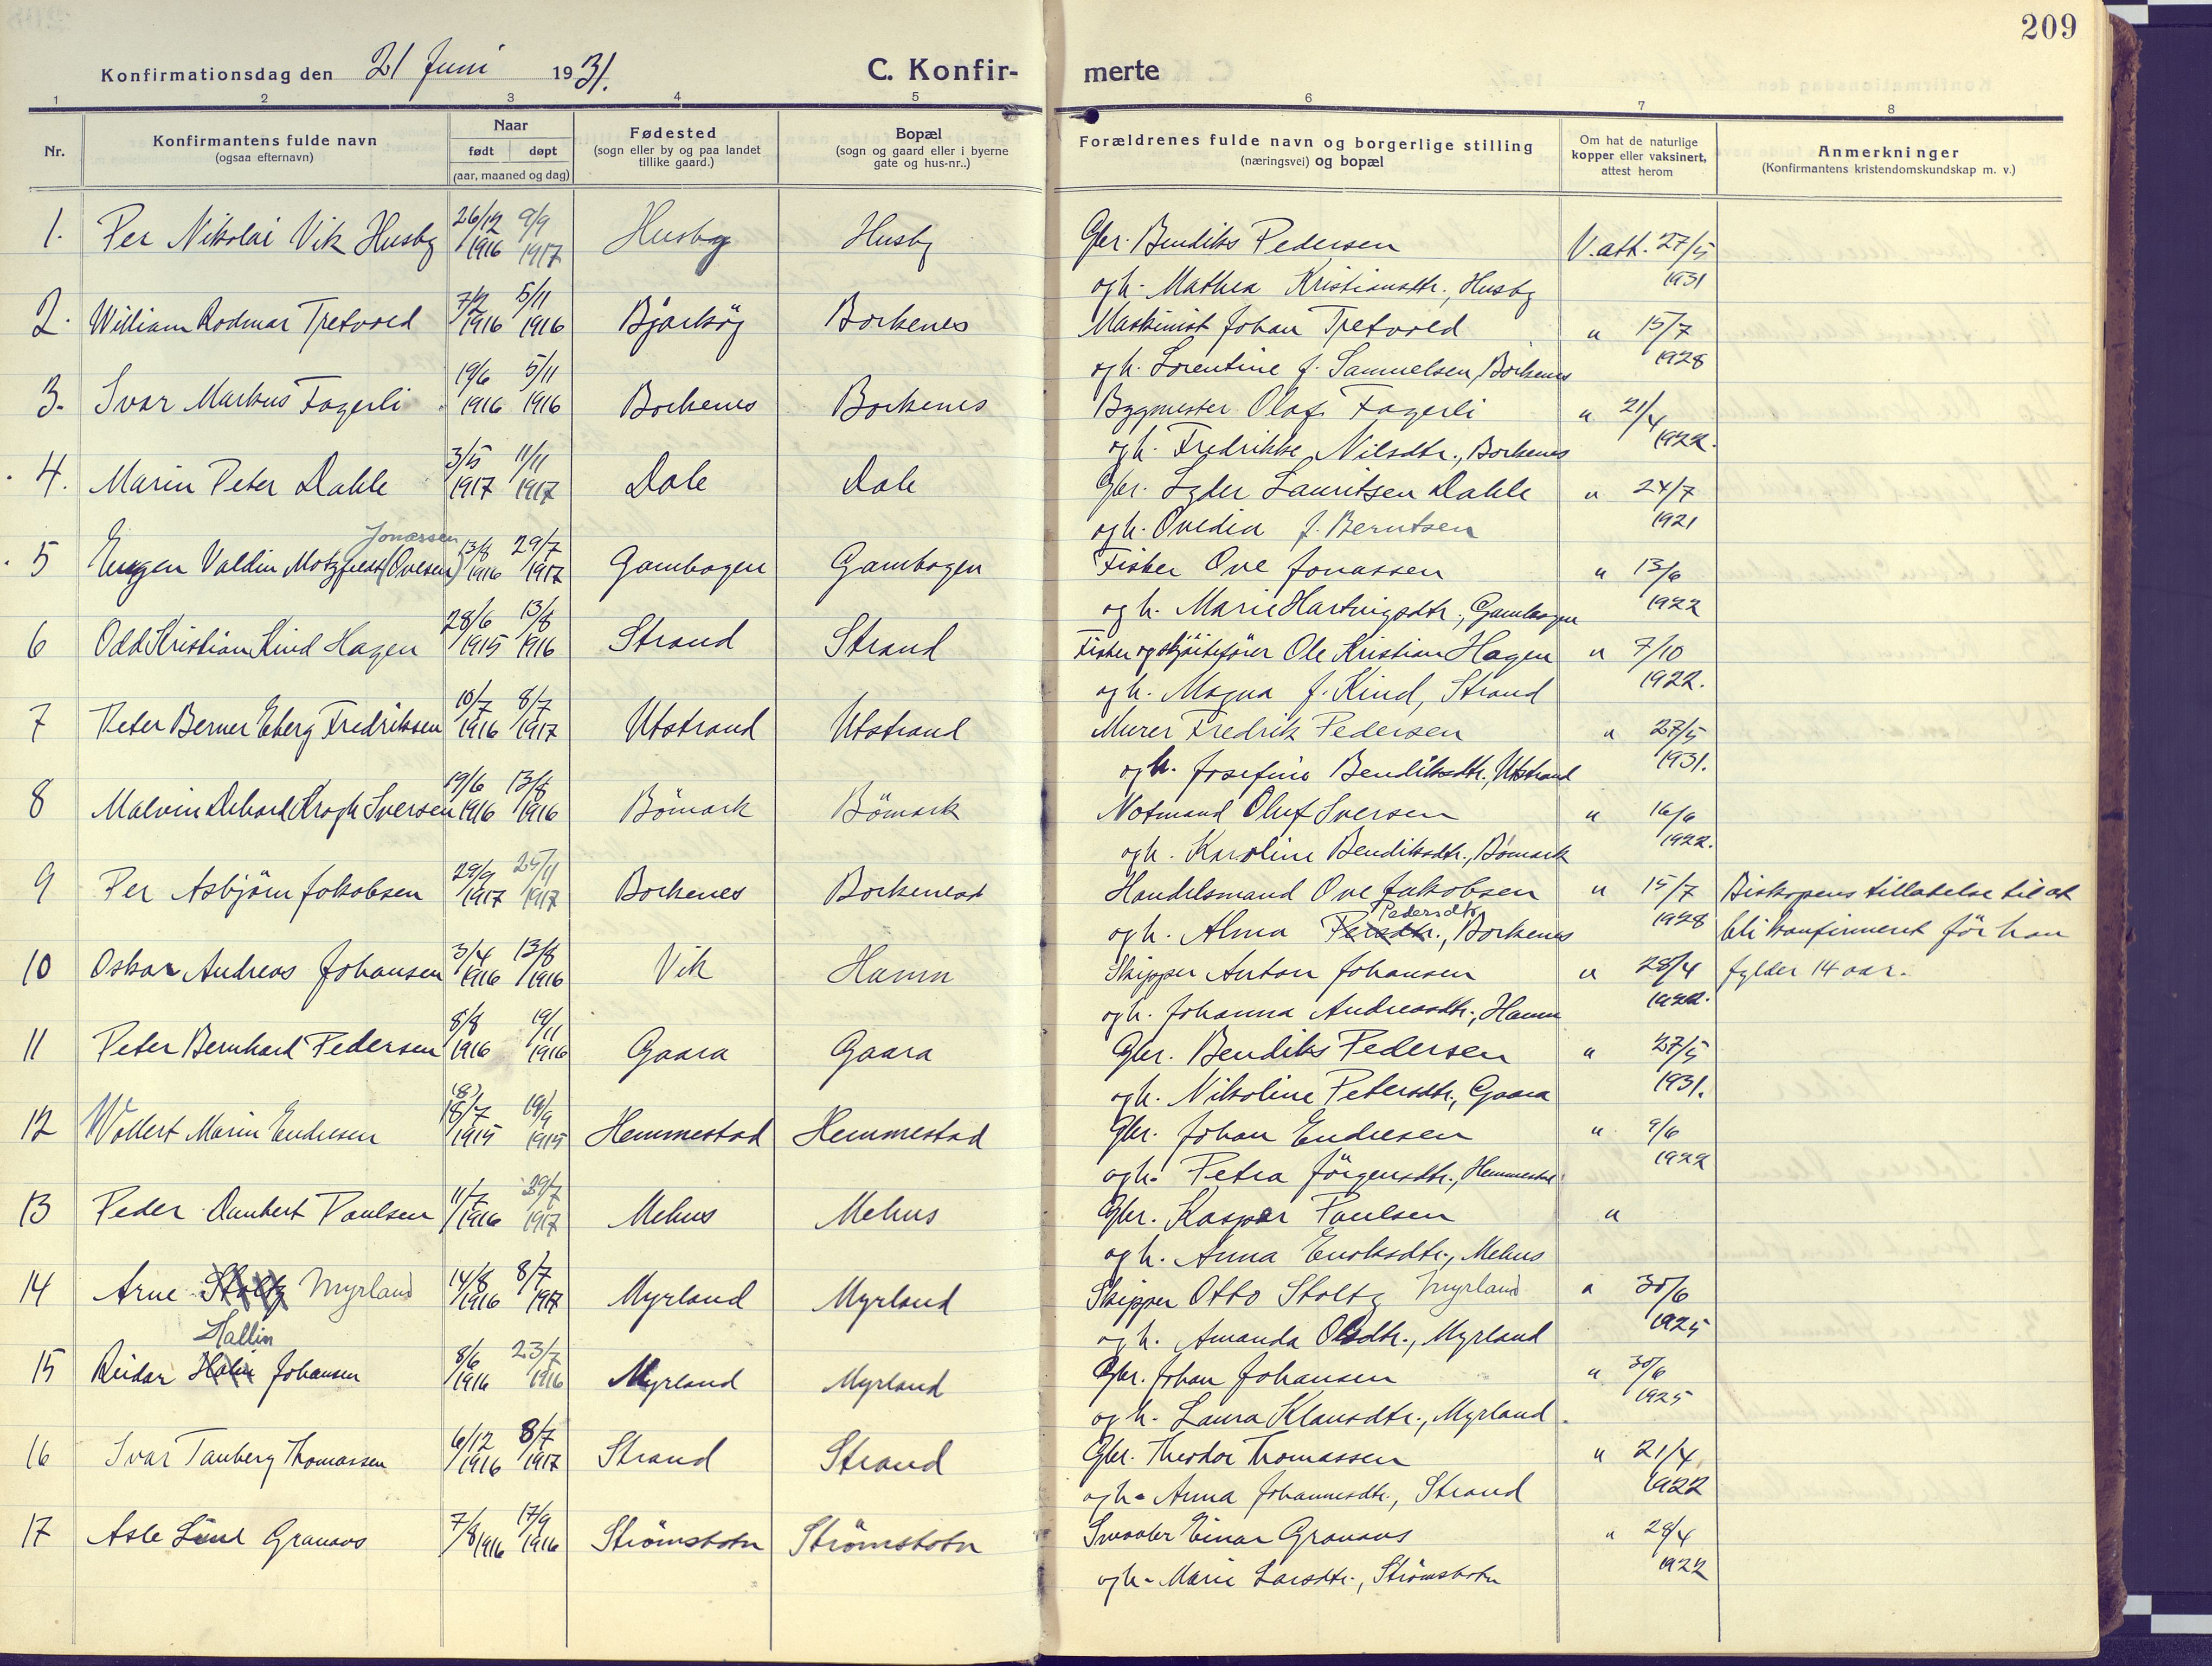 209
Konfirmationsdag den 21 Juni 1931.
C. Konfir- merte
1 2 3 4 5 6 7 8
Nr.
Konfirmantens fulde navn
(ogsaa efternavn)
Naar
født døpt
(aar, maaned og dag)
Fødested
(sogn eller by og paa landet
tillike gaard.)
Bopæl
(sogn og gaard eller i byerne
gate og hus-nr..)
Forældrenes fulde navn og borgerlige stilling
(næringsvei) og bopæl
Om hat de naturlige
kopper eller vaksinert,
attest herom
Anmerkninger
(Konfirmantens kristendomskundskap m. v.)
1. Per Nikolai Vik Husby 26/12 1916 9/9 1917 Husby Husby Gbr. Bendiks Pedersen V. att. 27/5
og h. Mathea Kristiansdtr., Husby 1931
2. William Rodmar Tretvold 7/2 1916 5/11 1916 Bjarköy Borkenes Maskinist Johan Tretvold " 15/7
og h. Lorentine f. Samuelsen, Borkenes 1928
3. Ivar Markus Fagerli 19/6 1916 5/11 1916 Borkenes Borkenes Bygmester Olaf Fagerli " 21/4
og h. Fredrikke Nilsdtr., Borkenes 1922.
4. Marin Peter Dahle 3/5 1917 11/11 1917 Dale Dale Gbr. Lyder Lauritsen Dahle " 24/7
og h. Ovedia f. Berntsen 1921
Jonassen
5 Eugen Valdin Motzfeldt (Ovesen) 13/8 1916 29/7 1917 Gambogen Gambogen Fisker Ove Jonassen " 13/6
og h. Marie Hartvigsdtr., Gambogen 1922
6 Odd Kristian Kind Hagen 28/6 1915 13/8 1916 Strand Strand Fisker og skjöitefører Ole Kristian Hagen " 7/10
og h. Magna f. Kind, Strand 1922.
7 Peter Berner Eberg Fredriksen 10/7 1916 8/7 1917 Utstrand Utstrand Murer Fredrik Pedersen " 27/5
og h. Josefine Bendiksdtr., Utstrand 1931.
8 Malvin Dehard Krogh Iversen 19/6 1916 13/8 1916 Bömark Bömark Notmand Oluf Iversen " 16/6
og h. Karoline Bendiksdtr., Bömark 1922.
9 Per Asbjörn Jakobsen 29/9 1917 25/11 1917 Borkenes Borkenes Handelsmand Ove Jakobsen " 15/7 Biskopens tilladelse til at
og h. Alma Persdtr. Pedersdtr, Borkenes 1928 bli konfirmeret för han
10 Oskar Andreas Johansen 3/4 1916 13/8 1916 Vik Hamn Skipper Anton Johansen " 28/4 fylder 14 aar.
og h. Johanna Andreasdtr., Hamn 1922.
11 Peter Bernhard Pedersen 8/8 1916 19/11 1916 Gaara Gaara Gbr. Bendiks Pedersen " 27/5
og h. Nikoline Petersdtr., Gaara 1931.
12 Wollert Marin Endresen (8) 18/7 1915 19/9 1915 Hemmestad Hemmestad Gbr. Johan Endresen " 9/6
og h. Petra Jörgensdtr., Hemmestad 1922
13 Peder Dankert Paulsen 11/7 1916 29/7 1917 Mehus Mehus Gbr. Kasper Paulsen "
og h. Anna Enoksdtr., Mehus
14 Arne Stoltz Myrland 14/8 1916 8/7 1917 Myrland Myrland Skipper Otto Stoltz Myrland " 30/6
og h. Amanda Olsdtr., Myrland 1925
Hallin
15 Reidar Halin Johansen 8/6 1916 23/7 1916 Myrland Myrland Gbr. Johan Johansen " 30/6
og h. Laura Klausdtr., Myrland. 1925
16 Ivar Tanberg Thomassen 6/12 1916 8/7 1917 Strand Strand Gbr. Theodor Thomassen " 21/4
og h. Anna Johannesdtr., Strand 1922
17 Asle Lind Granaas 7/8 1916 17/9 1916 Strömsbotn Strömsbotn Snekker Einar Granaas " 28/4
og h. Marie Larsdtr., Strömsbotn 1922